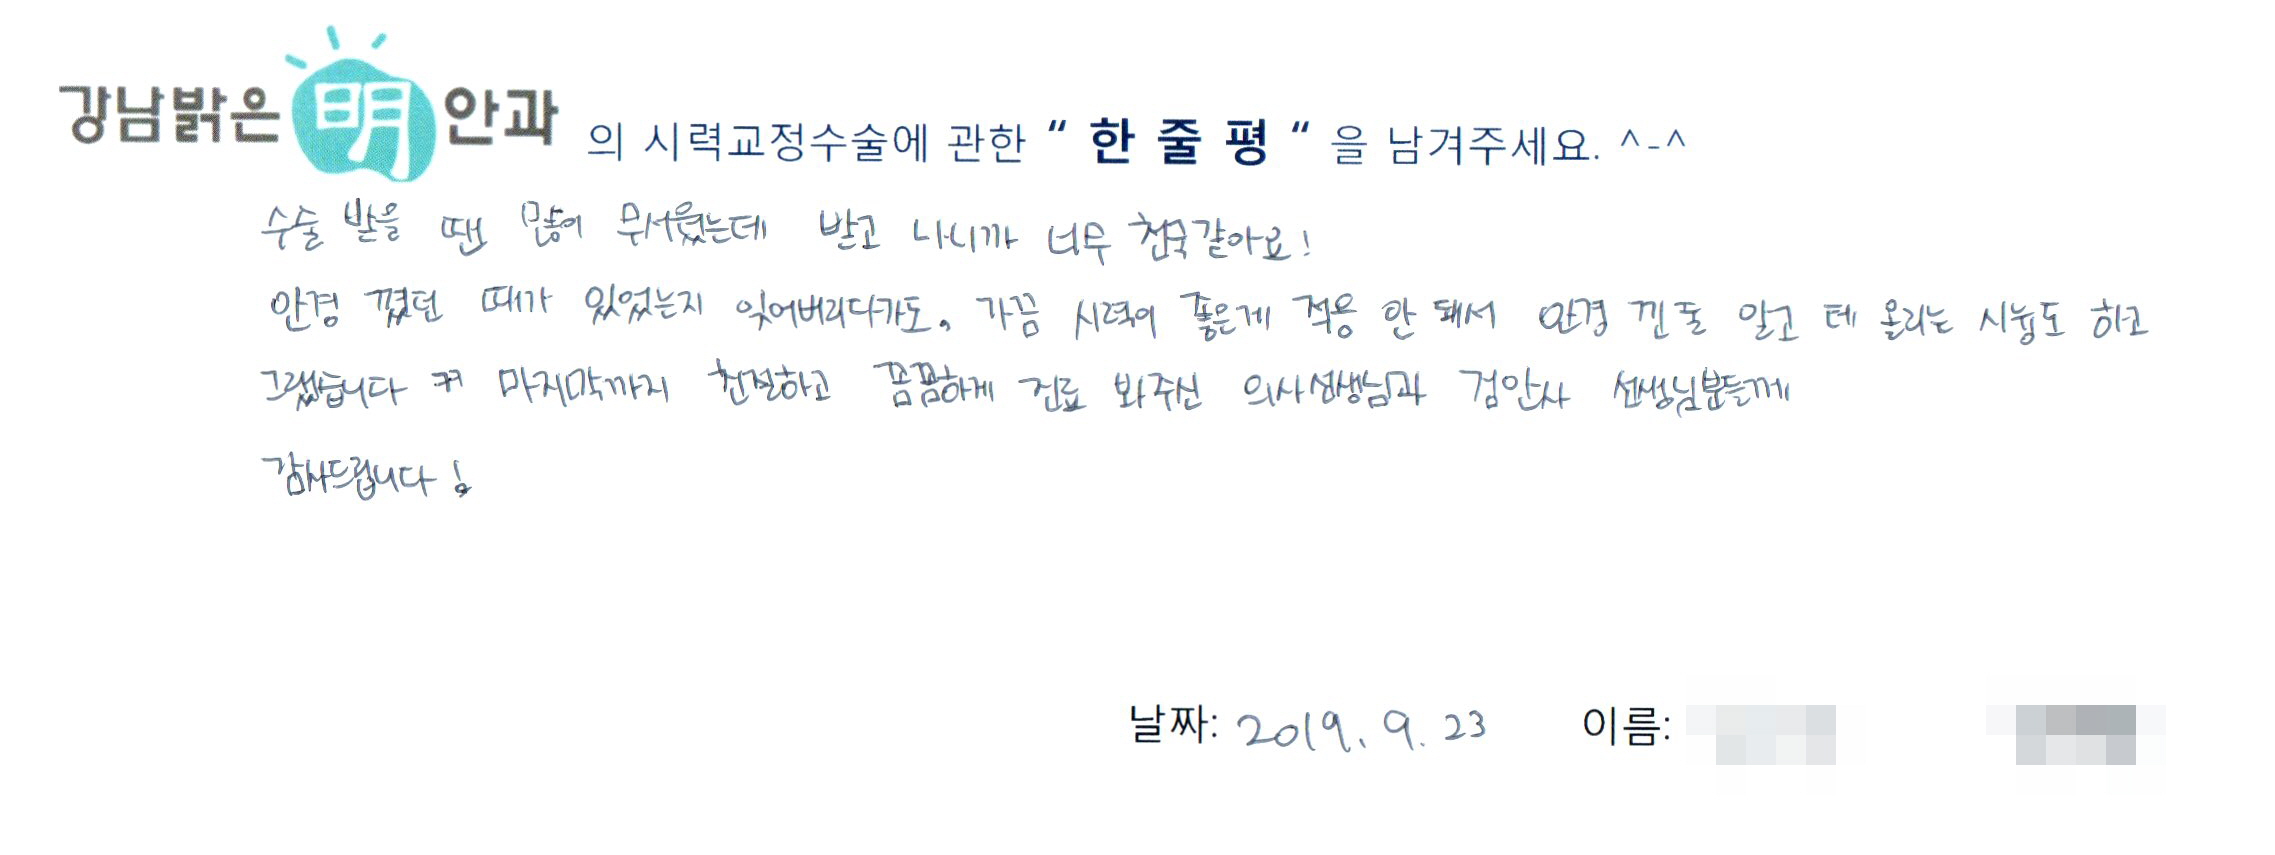 강남밝은 明 안과 의 시력교정수술에 관한 “ 한 줄 평 “ 을 남겨주세요. ^-^
수술 받을 땐 많이 무서웠는데 받고 나니까 너무 천국같아요!
안경 꼈던 때가 있었는지 잊어버리다가도, 가끔 시력이 좋은게 적응 안 돼서 안경 낀 줄 알고 테 올리는 시늉도 하고
그랬습니다 ㅋㅋ 마지막까지 친절하고 꼼꼼하게 진료 봐주신 의사선생님과 검안사 선생님분들께
감사드립니다!
날짜: 2019. 9. 23 이름: